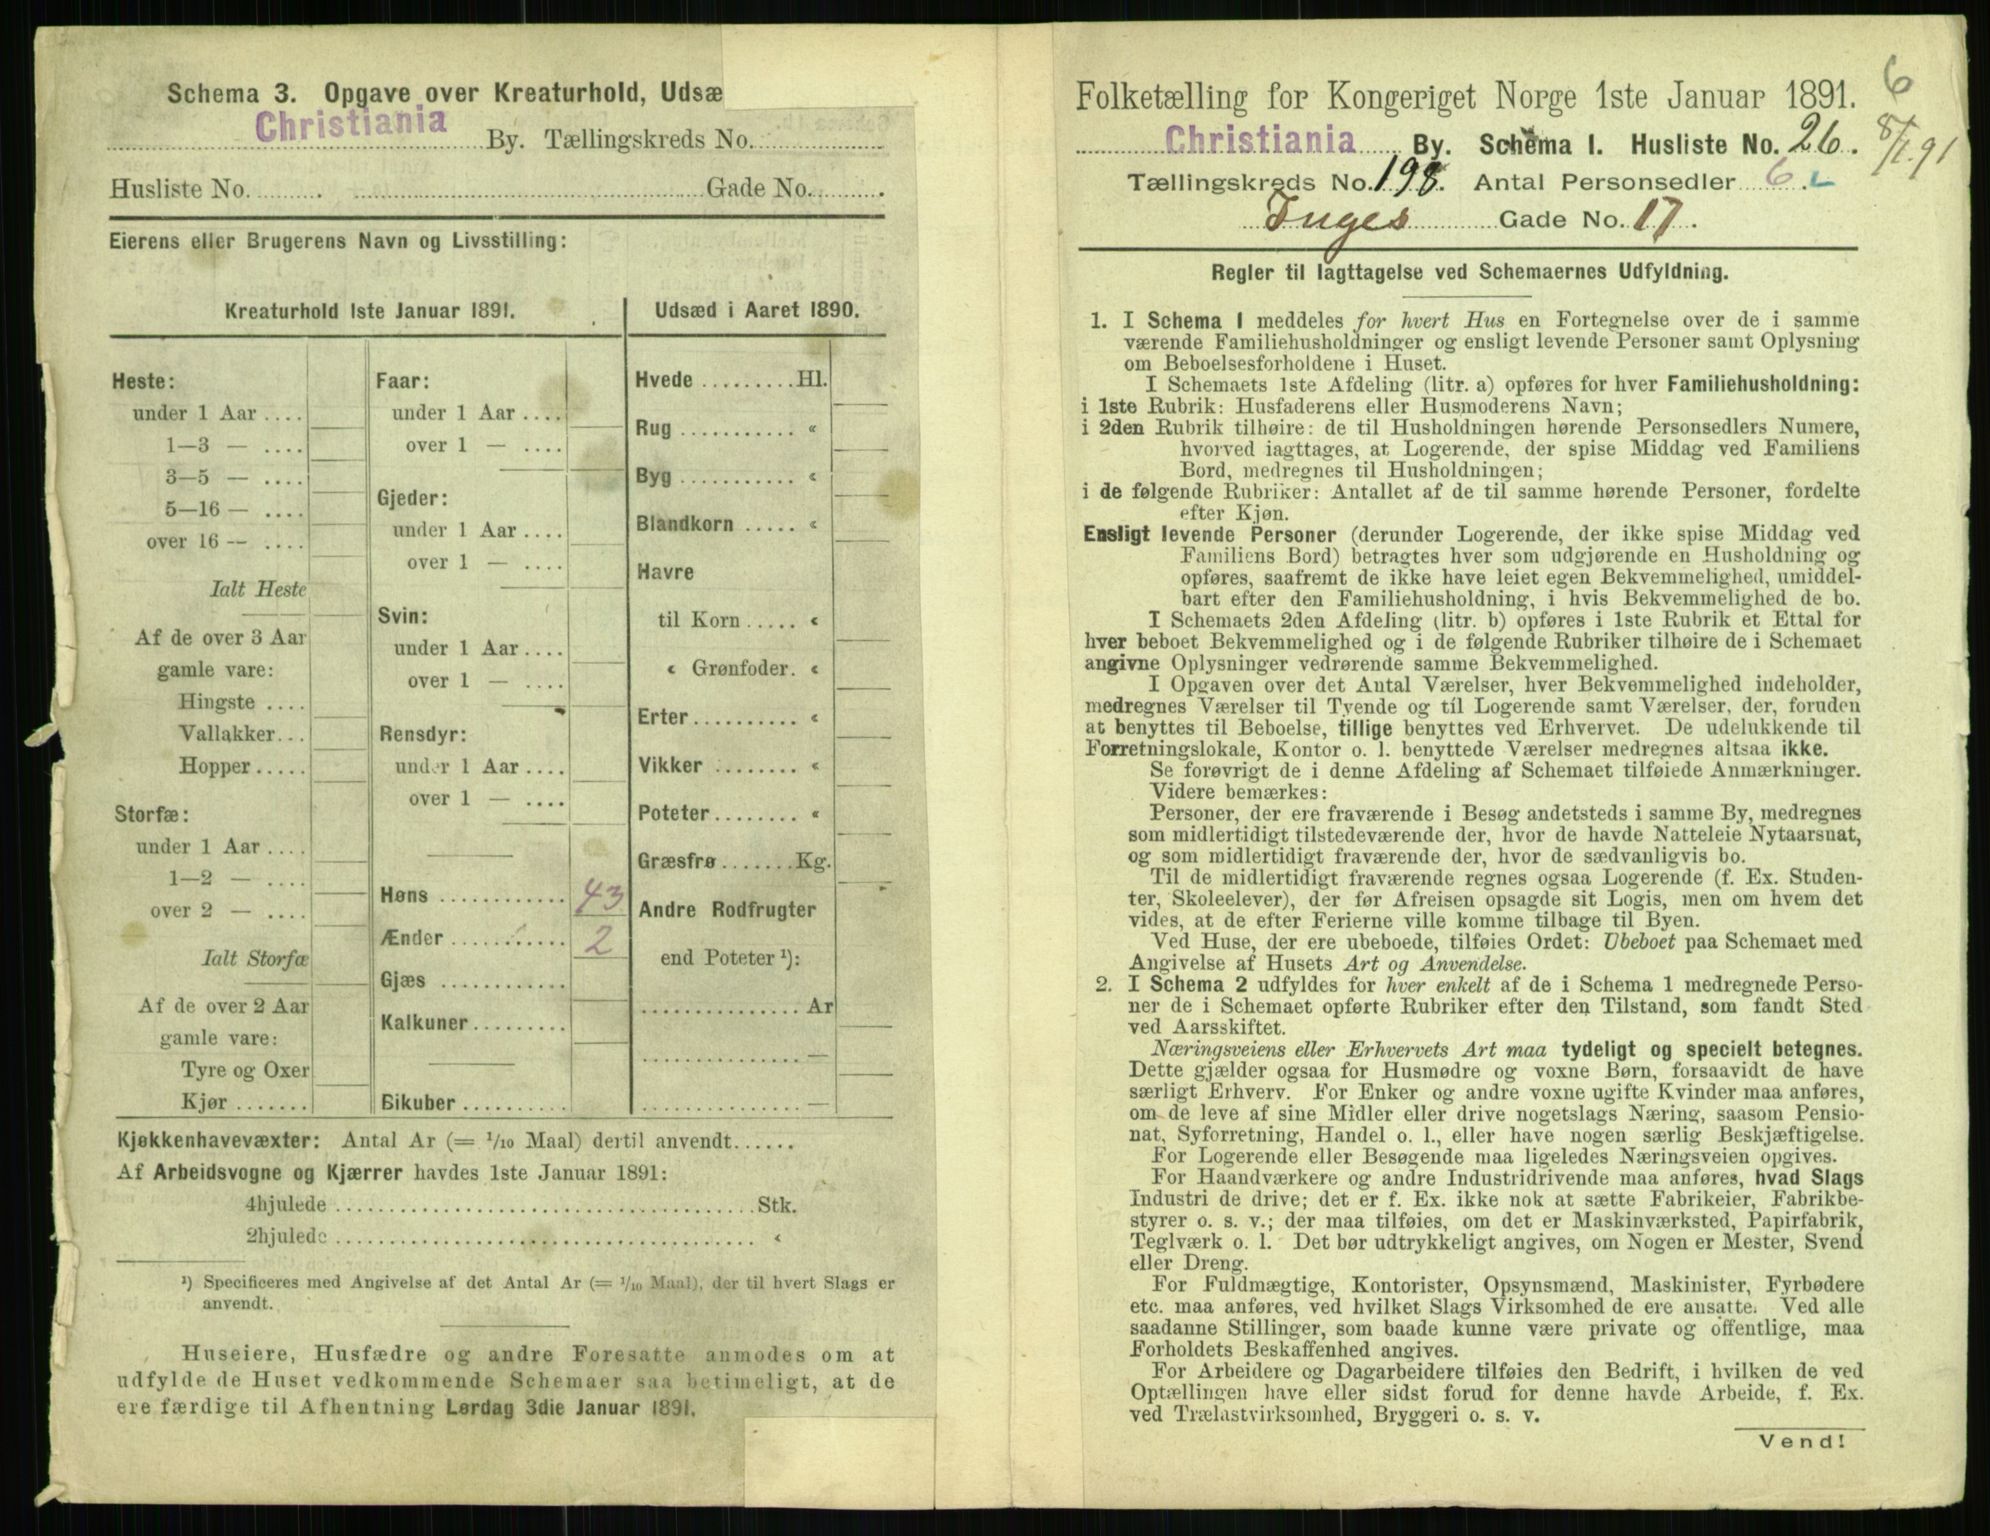 Schema 3. Opgave over Kreaturhold, Udsæ
Christiania By. Tællingskreds No.
Husliste No. Gade No.
Eierens eller Brugerens Navn og Livsstilling:
Kreaturhold 1ste Januar 1891.
Heste:
under 1 Aar ....
1—3 — ....
3—5 — ....
5—16 — ....
over 16 — ....
Ialt Heste
Af de over 3 Aar
gamle vare:
Hingste ....
Vallakker...
Hopper.....
Storfæ:
under 1 Aar ....
1—2 — ....
over 2 — ....
Ialt Storfæ
Af de over 2 Aar
gamle vare:
Tyre og Oxer
Kjør.......
Faar:
under 1 Aar ....
over 1 — ....
Gjeder:
under 1 Aar ....
over 1 — ....
Svin:
under 1 Aar ....
over 1 — ....
Rensdyr:
under 1 Aar ....
over 1 — ....
Høns ............ 43
Ænder ........... 2
Gjæs ............
Kalkuner.........
Bikuber..........
Udsæd i Aaret 1890.
Hvede .........Hl.
Rug ........... «
Byg ........... «
Blandkorn ..... «
Havre
til Korn ..... «
« Grønfoder. «
Erter.......... «
Vikker ........ «
Poteter........ «
Græsfrø .......Kg.
Andre Rodfrugter
end Poteter ¹):
............... Ar
............... —
............... —
Kjøkkenhavevæxter: Antal Ar (= 1/10 Maal) dertil anvendt......
Af Arbeidsvogne og Kjærrer havdes 1ste Januar 1891:
4hjulede ........................................Stk.
2hjulede ........................................ «
¹) Specificeres med Angivelse af det Antal Ar (= 1/10 Maal), der til hvert Slags er
anvendt.
Huseiere, Husfædre og andre Foresatte anmodes om at
udfylde de Huset vedkommende Schemaer saa betimeligt, at de
ere færdige til Afhentning Lørdag 3die Januar 1891.
6
8/1.91
Folketælling for Kongeriget Norge 1ste Januar 1891.
Christiania By. Schema I. Husliste No. 26.
Tællingskreds No. 198. Antal Personsedler 6.
Inges Gade No. 17.
Regler til Iagttagelse ved Schemaernes Udfyldning.
1. I Schema I meddeles for hvert Hus en Fortegnelse over de i samme
værende Familiehusholdninger og ensligt levende Personer samt Oplysning
om Beboelsesforholdene i Huset.
I Schemaets 1ste Afdeling (litr. a) opføres for hver Familiehusholdning:
i 1ste Rubrik: Husfaderens eller Husmoderens Navn;
i 2den Rubrik tilhøire: de til Husholdningen hørende Personsedlers Numere,
hvorved iagttages, at Logerende, der spise Middag ved Familiens
Bord, medregnes til Husholdningen;
i de følgende Rubriker: Antallet af de til samme hørende Personer, fordelte
efter Kjøn.
Ensligt levende Personer (derunder Logerende, der ikke spise Middag ved
Familiens Bord) betragtes hver som udgjørende en Husholdning og
opføres, saafremt de ikke have leiet egen Bekvemmelighed, umiddel-
bart efter den Familiehusholdning, i hvis Bekvemmelighed de bo.
I Schemaets 2den Afdeling (litr. b) opføres i 1ste Rubrik et Ettal for
hver beboet Bekvemmelighed og i de følgende Rubriker tilhøire de i Schemaet
angivne Oplysninger vedrørende samme Bekvemmelighed.
I Opgaven over det Antal Værelser, hver Bekvemmelighed indeholder,
medregnes Værelser til Tyende og til Logerende samt Værelser, der, foruden
at benyttes til Beboelse, tillige benyttes ved Erhvervet. De udelukkende til
Forretningslokale, Kontor o. l. benyttede Værelser medregnes altsaa ikke.
Se forøvrigt de i denne Afdeling af Schemaet tilføiede Anmærkninger.
Videre bemærkes:
Personer, der ere fraværende i Besøg andetsteds i samme By, medregnes
som midlertidigt tilstedeværende der, hvor de havde Natteleie Nytaarsnat,
og som midlertidigt fraværende der, hvor de sædvanligvis bo.
Til de midlertidigt fraværende regnes ogsaa Logerende (f. Ex. Studen-
ter, Skoleelever), der før Afreisen opsagde sit Logis, men om hvem det
vides, at de efter Ferierne ville komme tilbage til Byen.
Ved Huse, der ere ubeboede, tilføies Ordet: Ubeboet paa Schemaet med
Angivelse af Husets Art og Anvendelse.
2. I Schema 2 udfyldes for hver enkelt af de i Schema 1 medregnede Perso-
ner de i Schemaet opførte Rubriker efter den Tilstand, som fandt Sted
ved Aarsskiftet.
Næringsveiens eller Erhvervets Art maa tydeligt og specielt betegnes.
Dette gjælder ogsaa for Husmødre og voxne Børn, forsaavidt de have
særligt Erhverv. For Enker og andre voxne ugifte Kvinder maa anføres,
om de leve af sine Midler eller drive nogetslags Næring, saasom Pensio-
nat, Syforretning, Handel o. l., eller have nogen særlig Beskjæftigelse.
For Logerende eller Besøgende maa ligeledes Næringsveien opgives.
For Haandværkere og andre Industridrivende maa anføres, hvad Slags
Industri de drive; det er f. Ex. ikke nok at sætte Fabrikeier, Fabrikbe-
styrer o. s. v.; der maa tilføies, om det er Maskinværksted, Papirfabrik,
Teglværk o. l. Det bør udtrykkeligt angives, om Nogen er Mester, Svend
eller Dreng.
For Fuldmægtige, Kontorister, Opsynsmænd, Maskinister, Fyrbødere
etc. maa anføres, ved hvilket Slags Virksomhed de ere ansatte. Ved alle
saadanne Stillinger, som baade kunne være private og offentlige, maa
Forholdets Beskaffenhed angives.
For Arbeidere og Dagarbeidere tilføies den Bedrift, i hvilken de ved
Optællingen have eller sidst forud for denne havde Arbeide, f. Ex.
ved Trælastvirksomhed, Bryggeri o. s. v.
Vend!